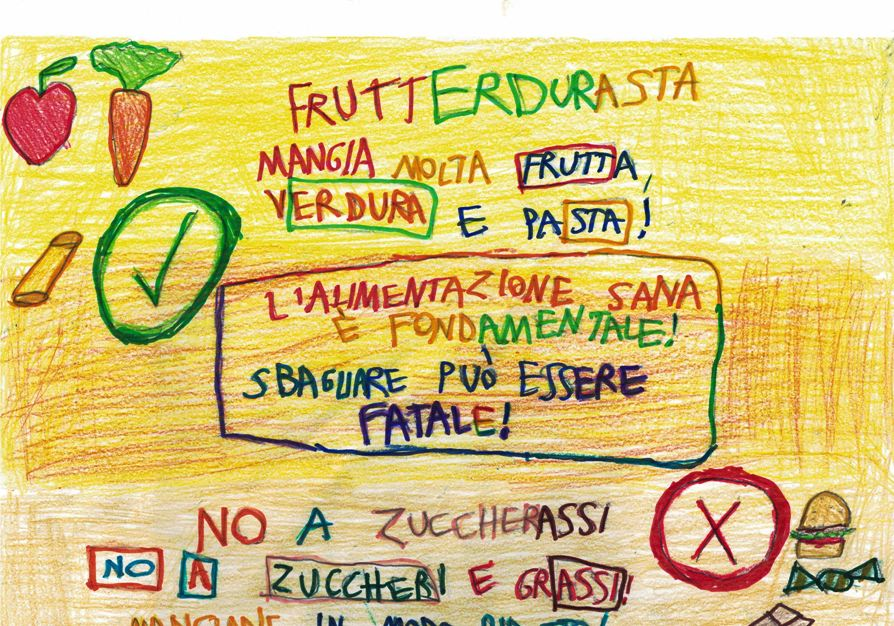 FRUTTERDURASTA
MANGIA MOLTA FRUTTA,
VERDURA E PASTA!
L'ALIMENTAZIONE SANA
È FONDAMENTALE!
SBAGLIARE PUÒ ESSERE
FATALE!
NO A ZUCCHERASSI
NO A ZUCCHERI E GRASSI!
IN MODO